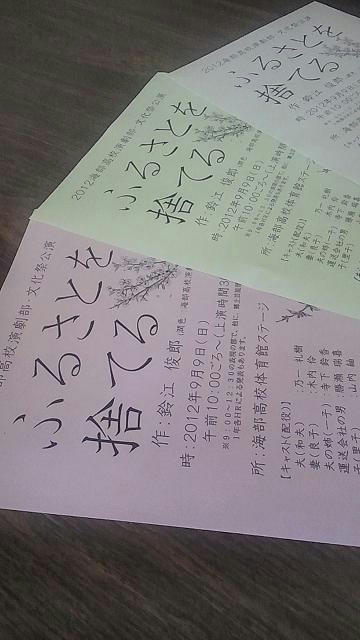 2012海部高校演劇部・文化祭公演
ふるさとを
捨てる
作 鈴江 俊郎
時 2012年9月9
2012海部高校演劇部・文化祭公演
ふるさとを
捨てる
作 鈴江 俊郎 潤色
時:2012年9月9日(日)
午前10:00ごろ〜(上演時間
所:海部高校体育館ステージ
【キャスト(配役)】
夫(和夫) :乃一 礼樹
妻(良子)
夫の姉(一子)
運送会社の男
部高校演劇部・文化祭公演
ふるさとを
捨てる
作:鈴江 俊郎 (潤色 海部高校演
時:2012年9月9日(日)
午前10:00ごろ〜(上演時間3
※9:00〜12:30の表現の部で、他に、郷土芸能
1年各HRによる発表もあります。
所:海部高校体育館ステージ
【キャスト(配役)】
夫(和夫) :乃一 礼樹
妻(良子) :木内 伶
夫の姉(一子) :寺下 鈴香
運送会社の男 :勝瀬 瑞喜
子(里子) 山内 紬